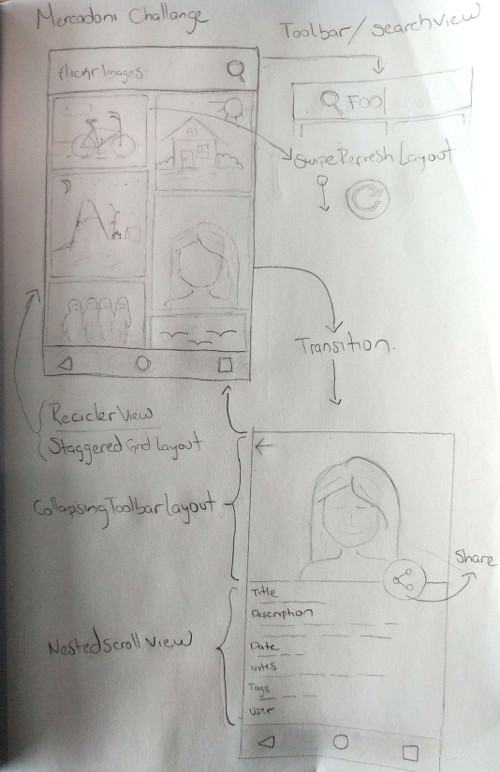 Mercadoni Challange
Toolbar/SearchView
flickr Images
Foo
SwipeRefresh Layout
Transition.
ReciclerView
Staggered Grid Layout
CollapsingToolbarLayout
Share
Title
Description
NestedScrollView
Date
Notes
Tags
User